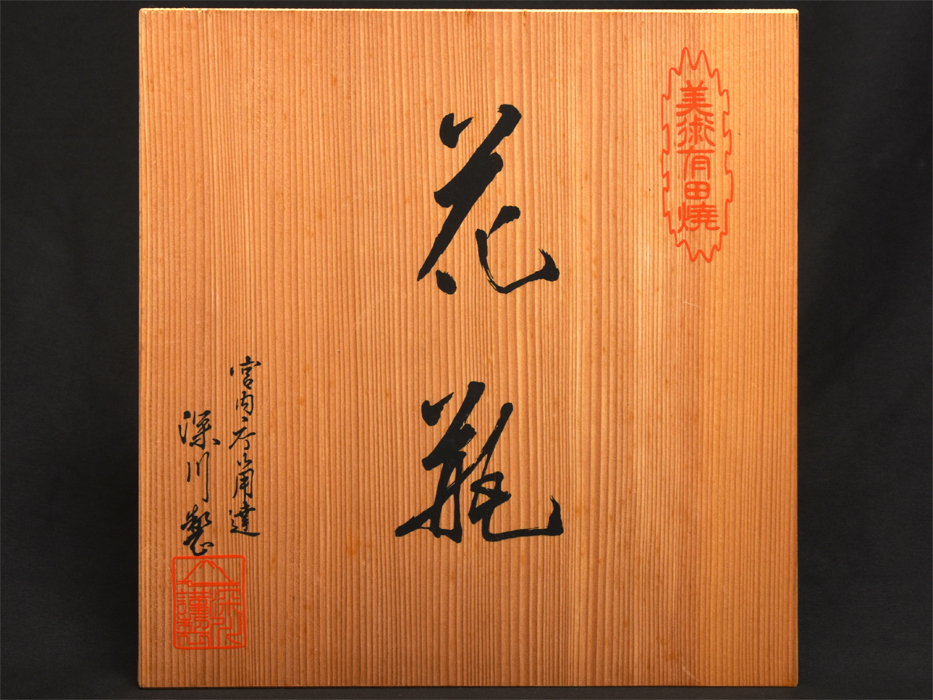 美術有田焼
花瓶
宮内庁御用達
深川製
深川謹製